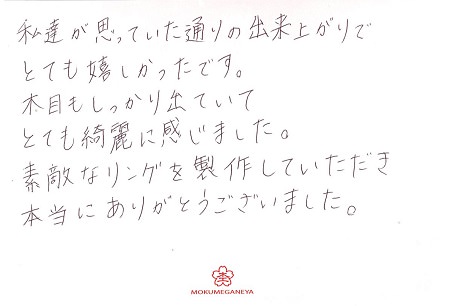 私達が思っていた通りの出来上がりで
とても嬉しかったです。
木目もしっかり出ていて
とても綺麗に感じました。
素敵なリングを製作していただき
本当にありがとうございました。
MOKUMEGANEYA